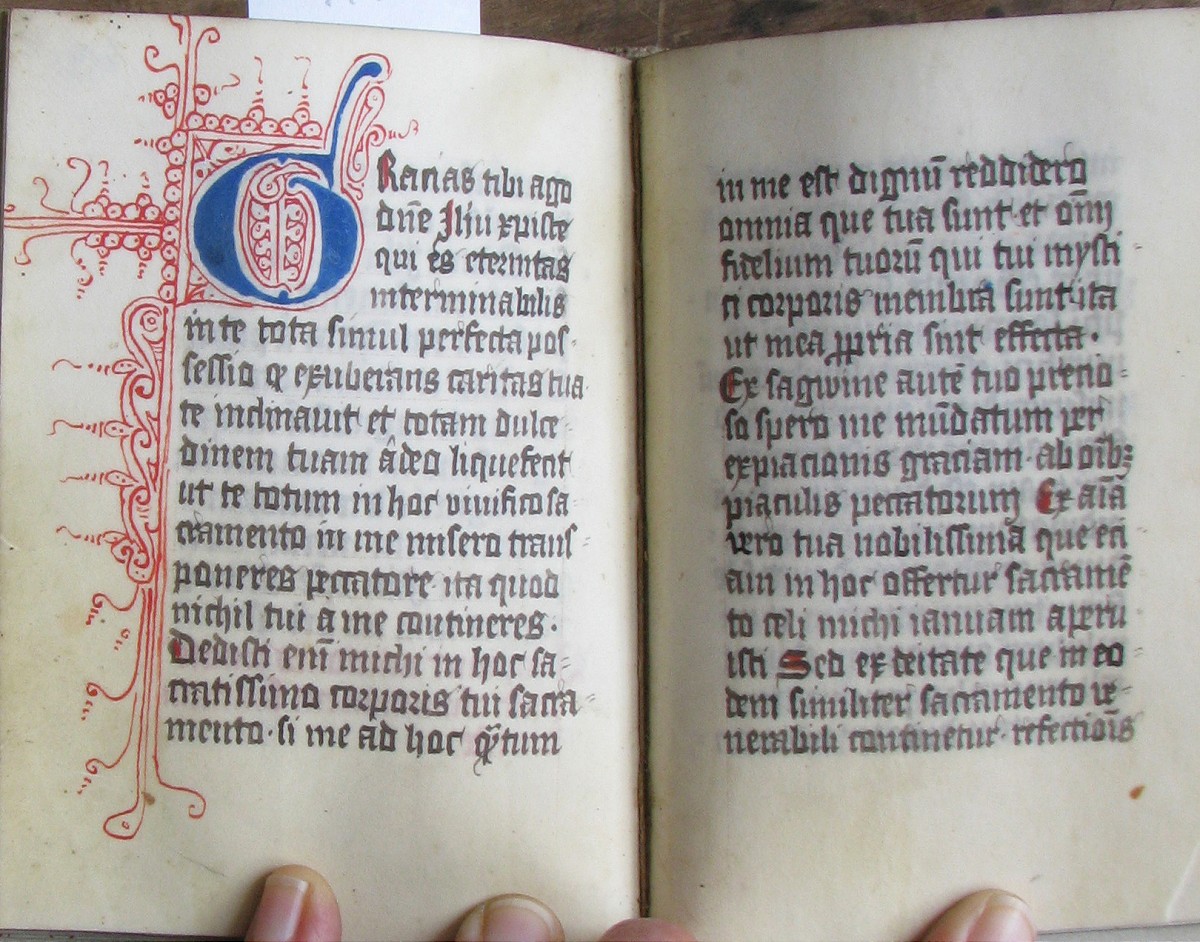 GRacias tibi ago
dn̄e Ih̄u xp̄iste
qui es eternitas
interminabilis
in te tota simul perfecta pos-
sessio qr exuberans caritas tua
te inclinauit et totam dulce-
dinem tuam adeo liquefecit
ut te totum in hoc viuifico sa-
cramento in me misero trans-
poneres peccatore ita quod
nichil tui a me contineres.
Dedisti eni̅ michi in hoc sa-
cratissimo corporis tui sacra-
mento. si me ad hoc qᷓtum
in me est dignū reddidero
omnia que tua sunt et om̄i
fidelium tuorū qui tui mysti
ci corporis membra sunt. ita
ut mea ꝓpria sint effecta.
Ex sagwine autē tuo precio-
so spero me mūdatum per
expiacionis graciam. ab oīb;
piaculis peccatorum Ex aīa
vero tua nobilissima que eci
am in hoc offertur sacramē
to celi michi ianuam aperu
isti Sed ex deitate que in eo-
dem similiter sacramento ve-
nerabili continetur. refectiōis